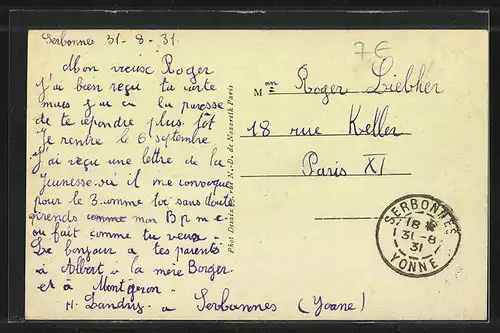 Serbonnes 31-8-31
7€
Mon vieux Roger
J'ai bien reçu ta carte
mais j'ai eu la paresse
de te répondre plus tôt
Je rentre le 6 septembre
J'ai reçu une lettre de la
Jeunesse où il me convoque
pour le 3. comme toi sans doute
mon
ou fait comme tu veux.
Le bonjour a tes parents
a Albert a la mère Borger
et a Montgeron.
H. Landry a Serbonnes (Yonne)
Phot Rue N.-D. de Nazareth Paris
Mon Roger Liebher
18 rue Keller
Paris XI
SERBONNES
18
31-8
31
YONNE